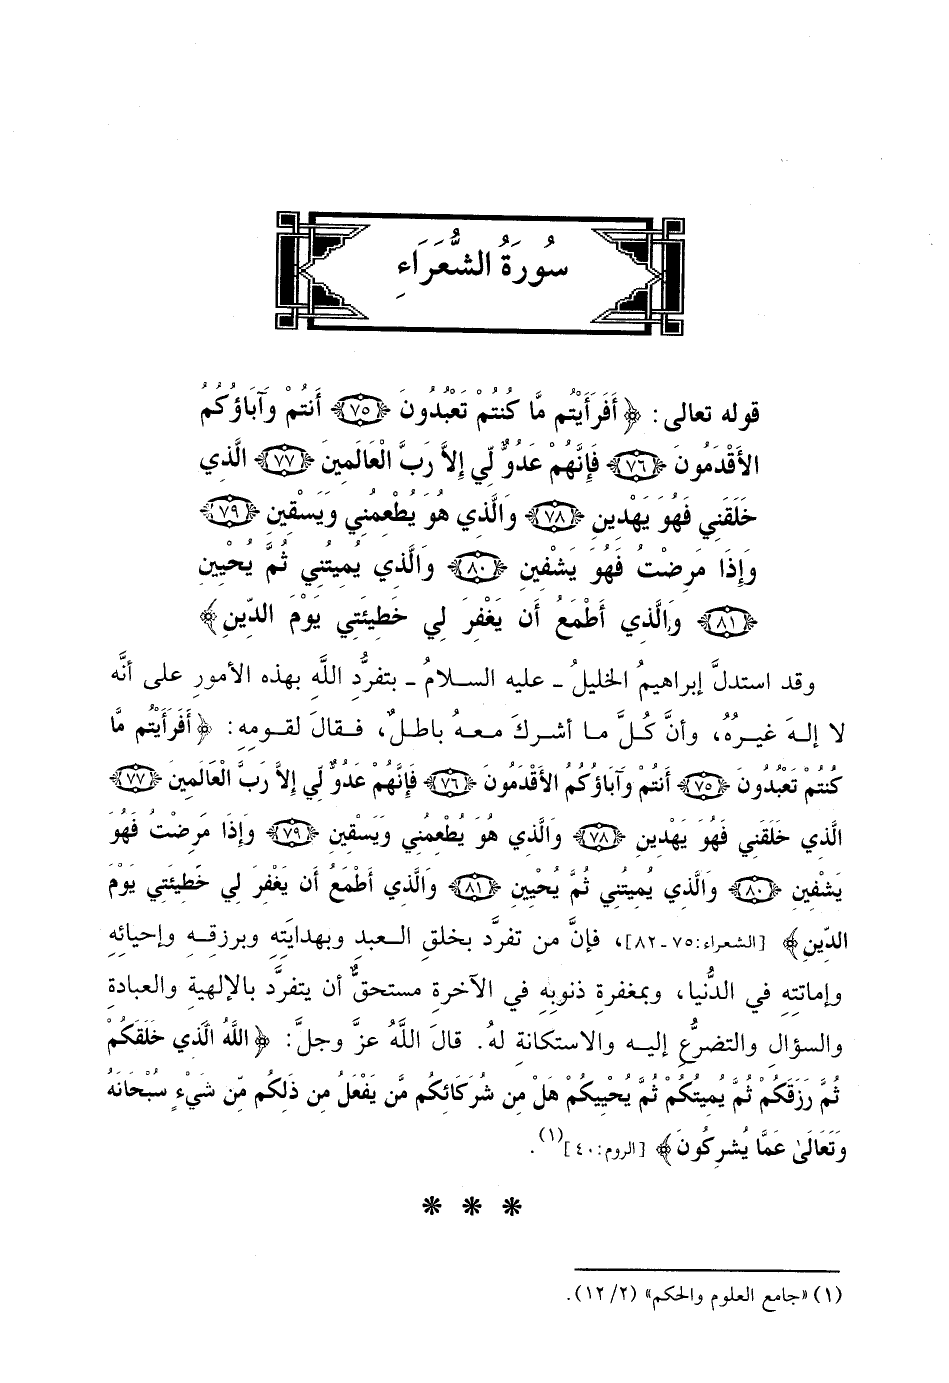 سُورَةُ الشُّعَرَاءِ
قوله تعالى: ﴿ أَفَرَأَيْتُم مَّا كُنتُمْ تَعْبُدُونَ ﴿٧٥﴾ أَنتُمْ وَآبَاؤُكُمُ
الأَقْدَمُونَ ﴿٧٦﴾ فَإِنَّهُمْ عَدُوٌّ لِّي إِلاَّ رَبَّ الْعَالَمِينَ ﴿٧٧﴾ الَّذِي
خَلَقَنِي فَهُوَ يَهْدِينِ ﴿٧٨﴾ وَالَّذِي هُوَ يُطْعِمُنِي وَيَسْقِينِ ﴿٧٩﴾
وَإِذَا مَرِضْتُ فَهُوَ يَشْفِينِ ﴿٨٠﴾ وَالَّذِي يُمِيتُنِي ثُمَّ يُحْيِينِ
﴿٨١﴾ وَالَّذِي أَطْمَعُ أَن يَغْفِرَ لِي خَطِيئَتِي يَوْمَ الدِّينِ﴾
وقد استدلَّ إبراهيمُ الخليلُ - عليه السلامُ - بتفردُّ اللَّهِ بهذه الأمورِ على أنَّه
لا إلهَ غيرُهُ، وأنَّ كُلَّ ما أشركَ معهُ باطلٌ، فقالَ لقومِهِ: ﴿أَفَرَأَيْتُم مَّا
كُنتُمْ تَعْبُدُونَ ﴿٧٥﴾ أَنتُمْ وَآبَاؤُكُمُ الأَقْدَمُونَ ﴿٧٦﴾ فَإِنَّهُمْ عَدُوٌّ لِّي إِلاَّ رَبَّ الْعَالَمِينَ ﴿٧٧﴾
الَّذِي خَلَقَنِي فَهُوَ يَهْدِينِ ﴿٧٨﴾ وَالَّذِي هُوَ يُطْعِمُنِي وَيَسْقِينِ ﴿٧٩﴾ وَإِذَا مَرِضْتُ فَهُوَ
يَشْفِينِ ﴿٨٠﴾ وَالَّذِي يُمِيتُنِي ثُمَّ يُحْيِينِ ﴿٨١﴾ وَالَّذِي أَطْمَعُ أَن يَغْفِرَ لِي خَطِيئَتِي يَوْمَ
الدِّينِ﴾ [الشعراء:٧٥-٨٢]، فإنَّ من تفرَّد بخلقِ العبدِ وبهدايتِهِ وبرزقِهِ وإحيائِهِ
وإماتتِهِ في الدُّنيا، وبمغفرة ذنوبِهِ في الآخرةِ مستحقٌّ أن يتفرَّد بالإلهيةِ والعبادةِ
والسؤالِ والتضرعُّ إليه والاستكانةِ لهُ. قالَ اللَّهُ عزَّ وجلَّ: ﴿ اللَّهُ الَّذِي خَلَقَكُمْ
ثُمَّ رَزَقَكُمْ ثُمَّ يُمِيتُكُمْ ثُمَّ يُحْيِيكُمْ هَلْ مِن شُرَكَائِكُم مَّن يَفْعَلُ مِن ذَلِكُم مِّن شَيْءٍ سُبْحَانَهُ
وَتَعَالَىٰ عَمَّا يُشْرِكُونَ﴾ [الروم:٤٠](١).
* * *
(١) «جامع العلوم والحكم» (٢/ ١٢).